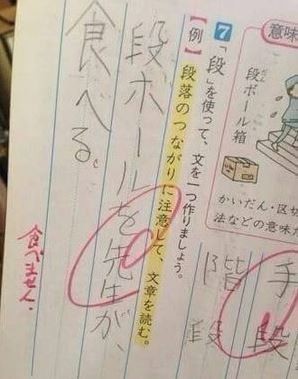 意味
段ボール箱
かいだん・区
法などの意味
手段
階段
7 「段」を使って、文を一つ作りましょう。
【例】 段落のつながりに注意して、文章を読む。
段ボールを先生が、
食べる。
食べません。